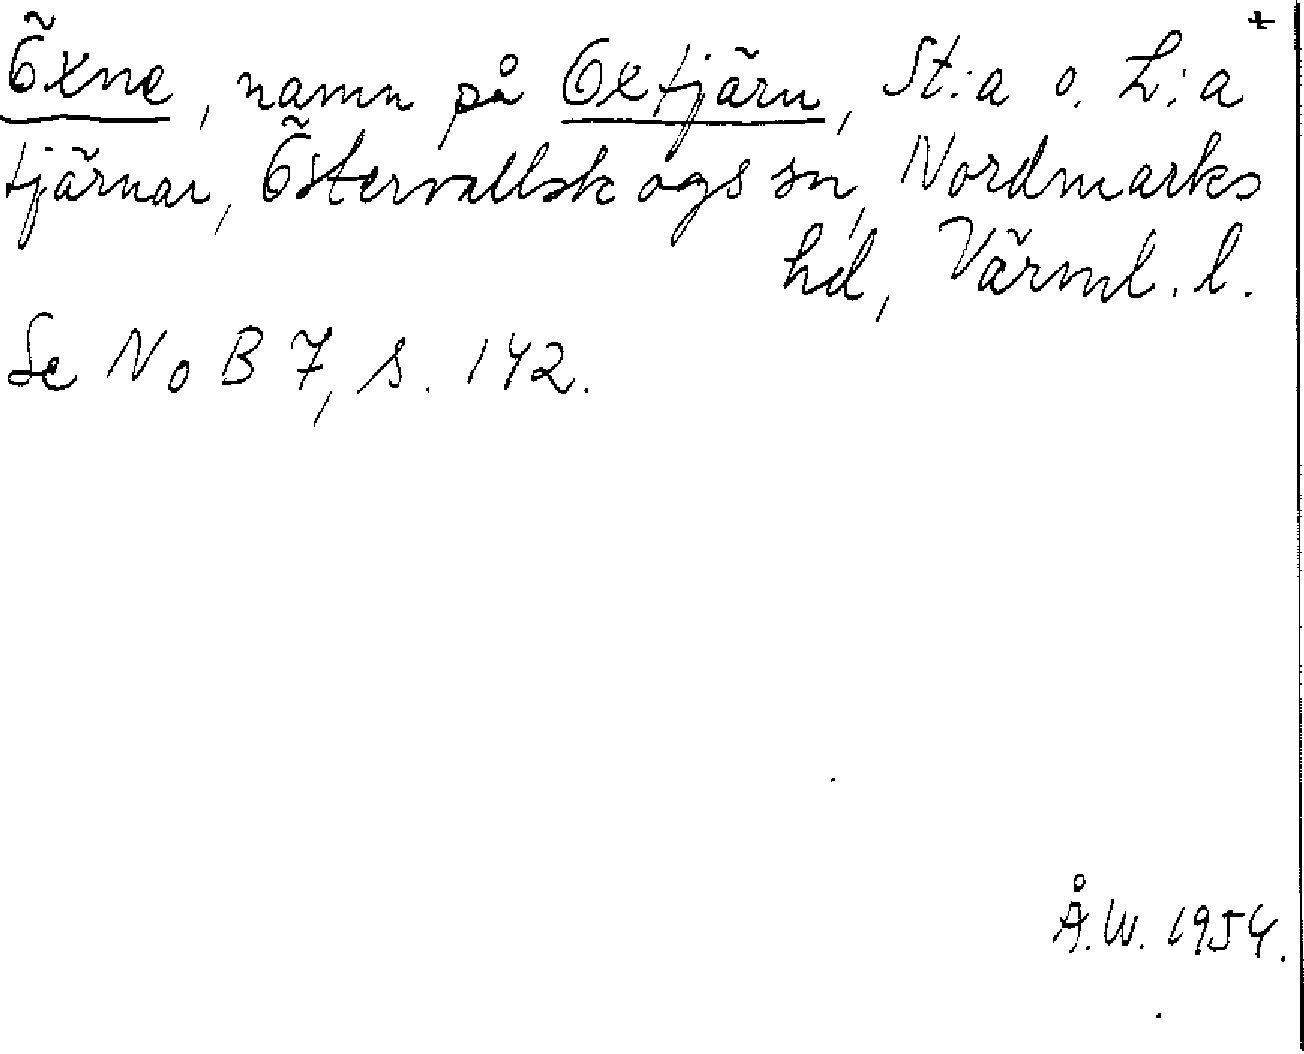 +
Öxne, namn på Oxtjärn, St:a o. L:a
tjärnar, Östervallskogs sn, Nordmarks
hd, Värml. l.
Se NoB 7, s. 142.
Å.W. 1954.